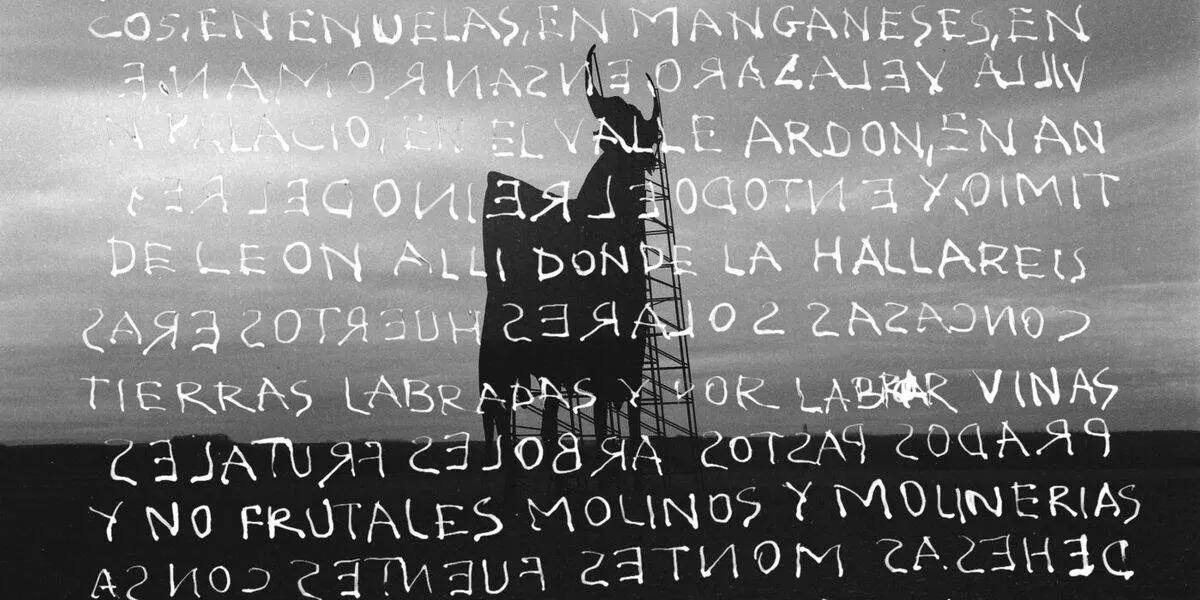 COS, EN ENUELAS, EN MANGANESES, EN
VILLA YELAZARO EN SAN ROMAN E
N PALACIO, EN EL VALLE ARDON, EN AN
TIMIO, Y EN TODO EL REINO DEL
DE LEON ALLI DONDE LA HALLAREIS
CON CASAS SOLARES HUERTOS ERAS
TIERRAS LABRADAS Y POR LABRAR VINAS
PRADOS PASTOS ARBOLES FRUTALES
Y NO FRUTALES MOLINOS Y MOLINERIAS
DEHESAS MONTES FUENTES CON SA